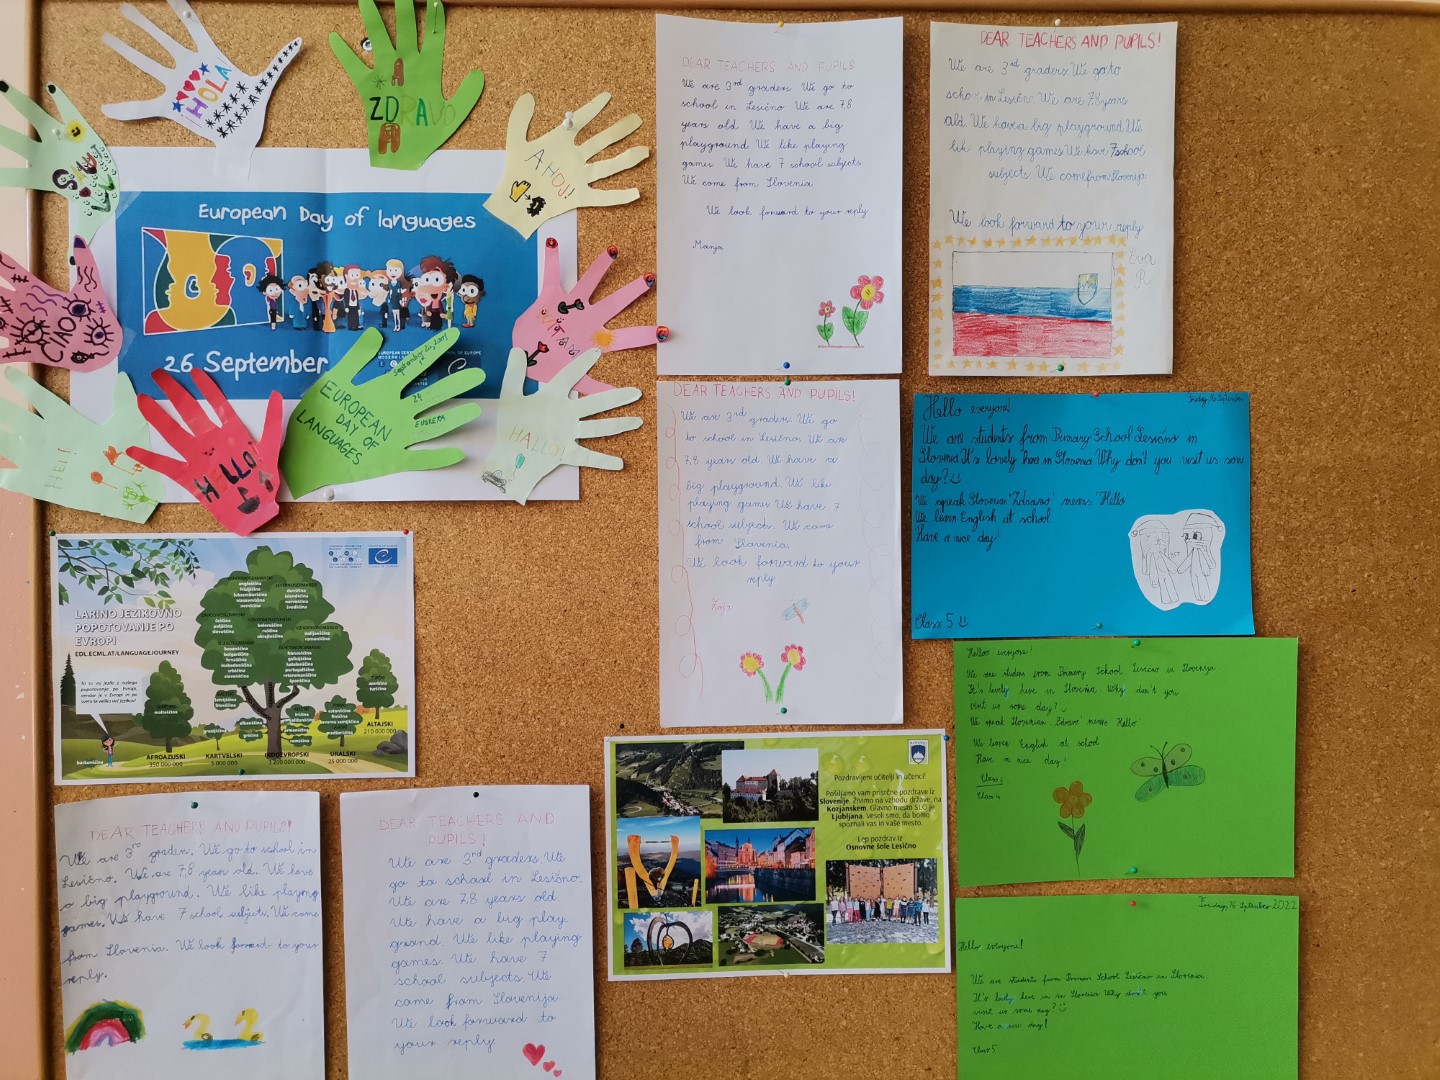 ¡HOLA
ZDRAVO
AHOJ!
CIAO
HEJ!
HALLO!
European Day of languages
26 September
EUROPEAN
DAY OF
LANGUAGES
EUSKERA
DEAR TEACHERS AND PUPILS
We are 3rd graders We go to
school in Lesično We are 7,8
years old We have a big
playground We like playing
games We have 7 school subjects
We come from Slovenia
We look forward to your reply
Manja
DEAR TEACHERS AND PUPILS!
We are 3rd graders We go to
school in Lesično We are 7,8 years
old. We have a big playground We
lik playing games We have 7 school
subjects We come from Slovenija
We look forward to your reply
Eva
R
DEAR TEACHERS AND PUPILS!
We are 3rd graders. We go
to school in Lesično. We are
7,8 years old. We have a
big playground. We like
playing games We have 7
school subjects. We come
from Slovenia
We look forward to your
reply
Hello everyone!
We are students from Primary School Lesično in
Slovenia It's lovely here in Slovenia Why don't you visit us som
day?
We speak Slovenian 'Zdravo' means 'Hello
We learn English at school
Have a nice day!
Class 5
LARINO JEZIKOVNO
POPOTOVANJE PO
EVROPI
EDL.ECML.AT/LANGUAGEJOURNEY
baskovščina
AFROAZIJSKI
350 000 000
KARTVELSKI
5 000 000
INDOEVROPSKI
3 200 000 000
URALSKI
25 000 000
ALTAJSKI
210 000 000
Helloo everyone!
We are studens from Primary School Lesično in Slovenija
It's lovely here in Slovenia. Why don't you
visit us some day?
We speak Slovenian Zdravo' means Hello
We learn English at school
Have a nice day!
Class 4
Pozdravljeni učitelji in učenci!
Pošiljamo vam prisrčne pozdrave iz
Slovenije. Živimo na vzhodu države, na
Kozjanskem. Glavno mesto SLO je
Ljubljana. Veseli smo, da bomo
spoznali vas in vaše mesto.
Lep pozdrav iz
Osnovne šole Lesično
DEAR TEACHERS AND PUPILS!
We are 3rd graders. We go to school in
Lesično. We are 7,8 years old. We have
a big playground. We like playing
games. We have 7 school subjects. We come
from Slovenia. We look forward to your
reply.
DEAR TEACHERS AND
PUPILS!
We are 3rd graders. We
go to school in Lesično.
We are 7,8 years old
We have a big play
ground. We like playing
games. We have 7
school subjects. We
came from Slovenija
We look forward to
your reply
Friday, 16 September 2022
Hello everyone!
We are students from Primary School Lesično in Slovenia.
It's lovely here in Slovenia Why don't you
visit us some day?
Have a nice day!
Class 5